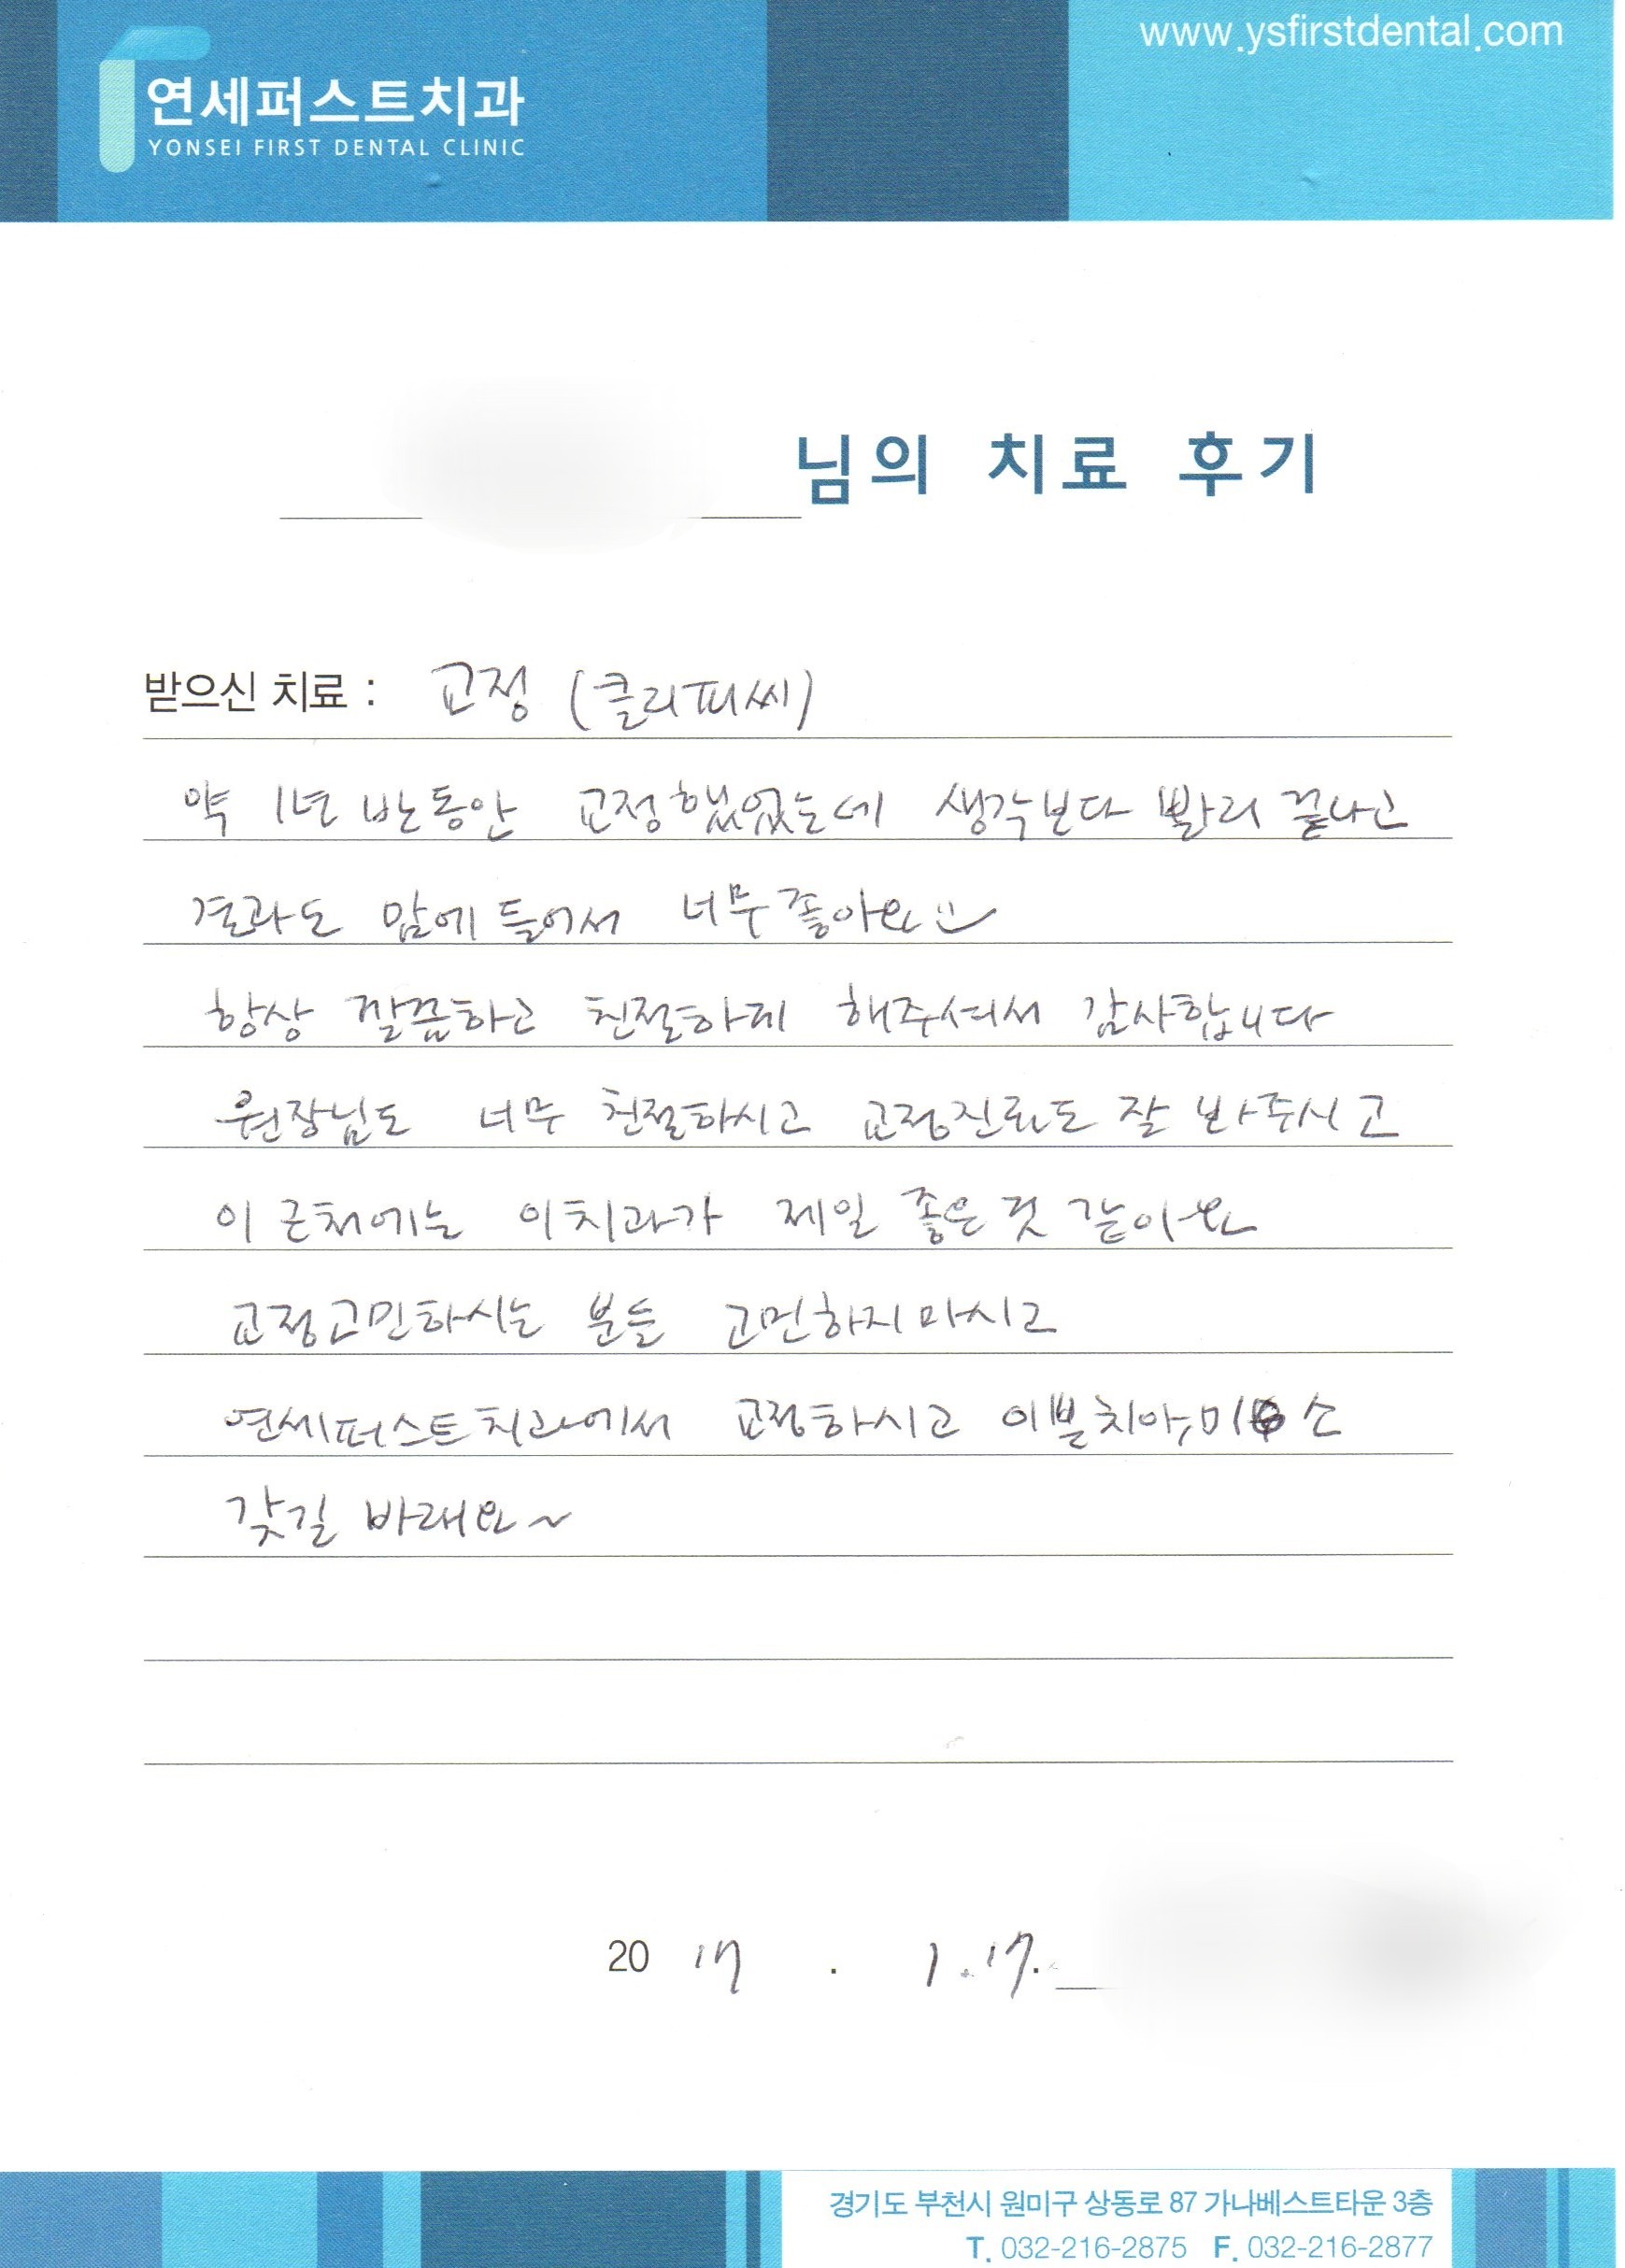 www.ysfirstdental.com
연세퍼스트치과
YONSEI FIRST DENTAL CLINIC
님의 치료 후기
받으신 치료 : 교정 (클리피씨)
약 1년 반동안 교정했었는데 생각보다 빨리 끝나고
결과도 맘에 들어서 너무 좋아요
항상 깔끔하고 친절하게 해주셔서 감사합니다
원장님도 너무 친절하시고 교정진료도 잘 봐주시고
이 근처에는 이치과가 제일 좋은 것 같아요
교정고민하시는 분들 고민하지마시고
연세퍼스트치과에서 교정하시고 이쁜치아, 미소
갖길 바래요~
20 17 . 1. 17.
경기도 부천시 원미구 상동로 87 가나베스트타운 3층
T. 032-216-2875 F. 032-216-2877